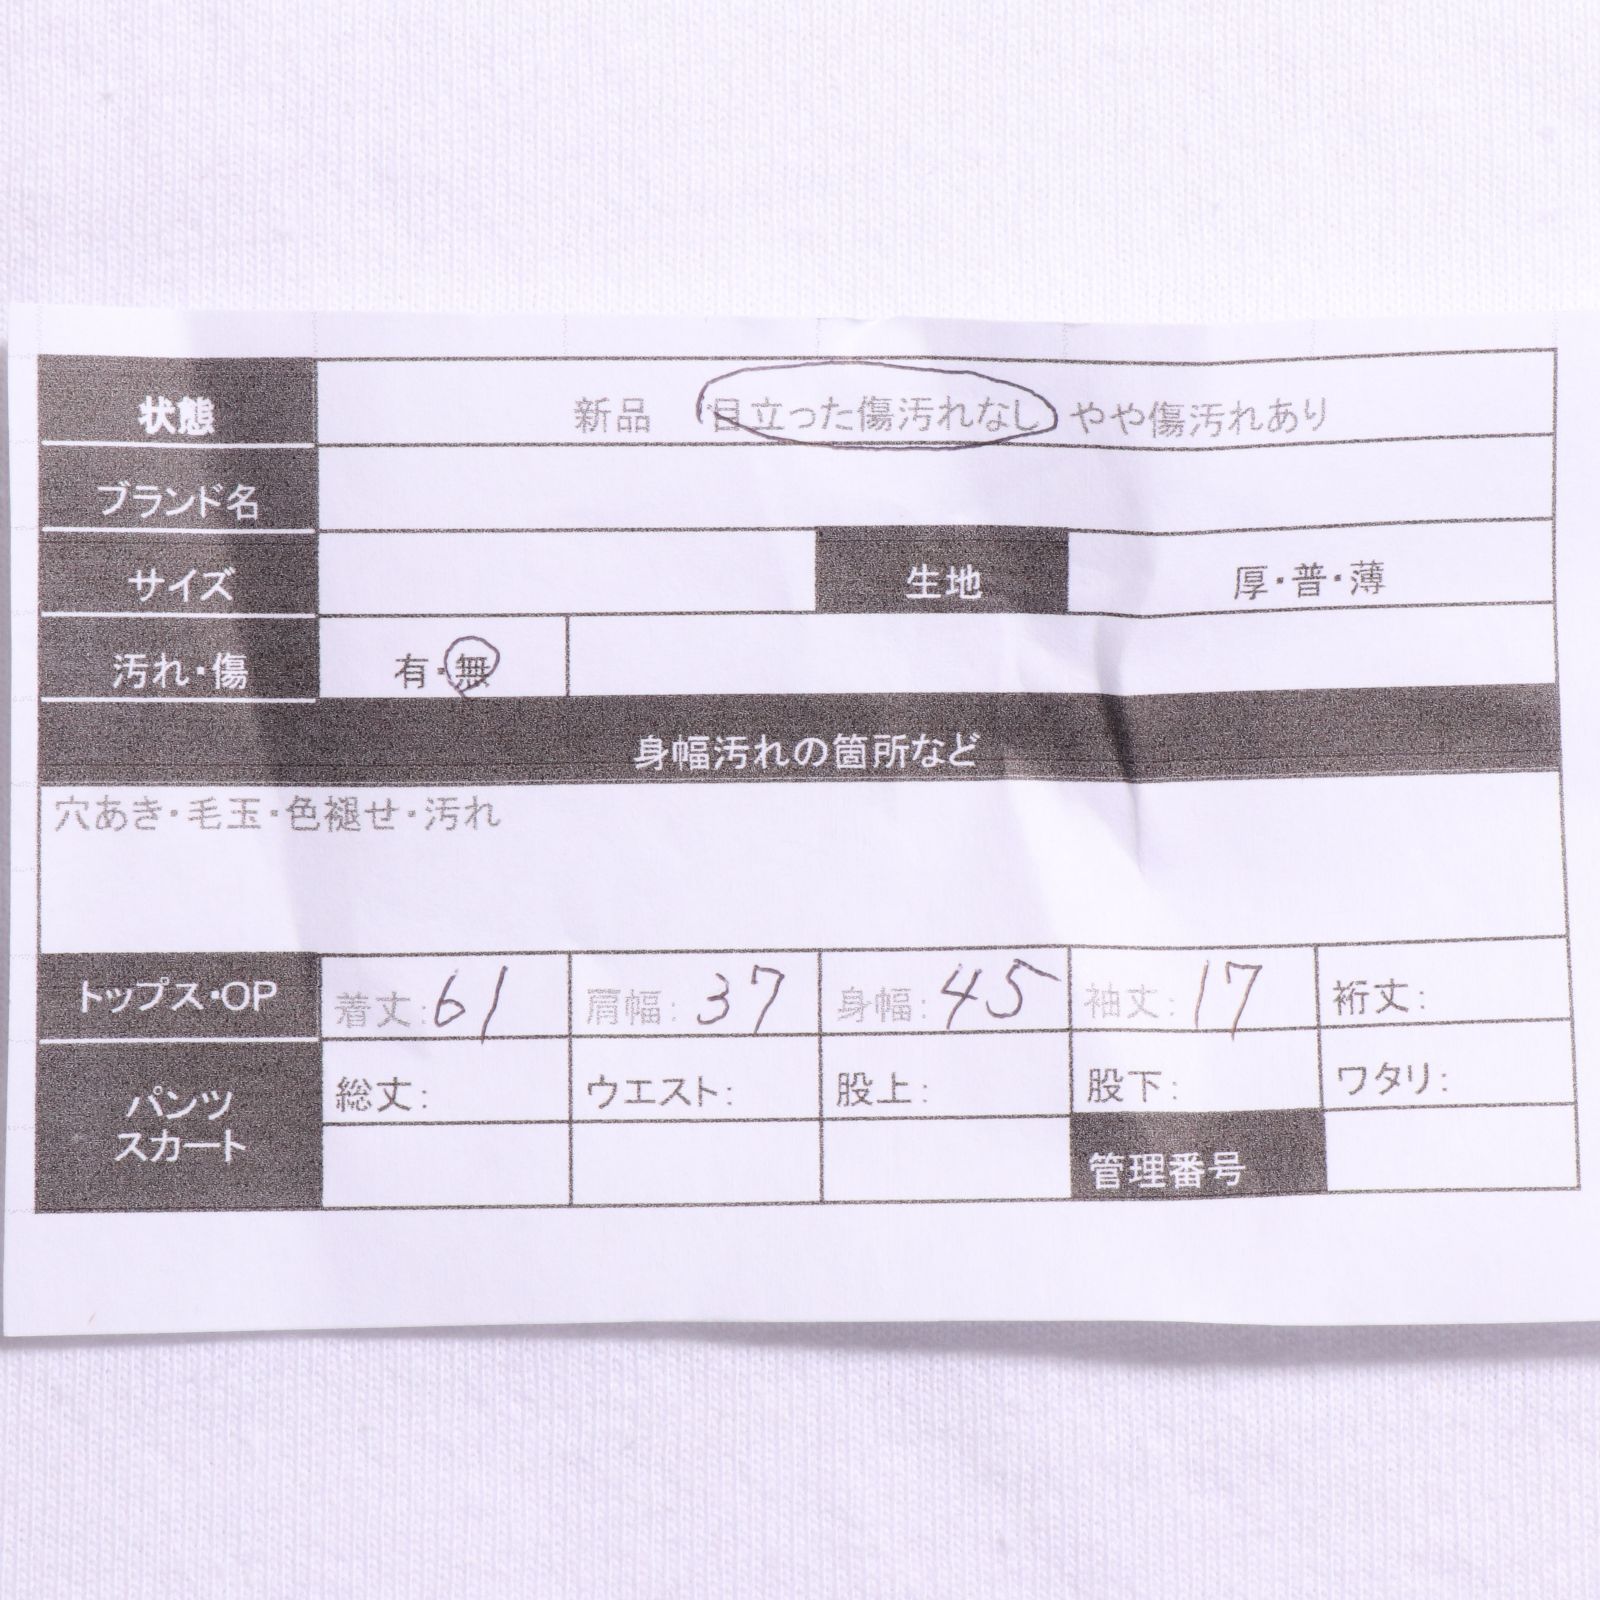 状態 新品 目立った傷汚れなし やや傷汚れあり
ブランド名
サイズ 生地 厚・普・薄
汚れ・傷 有・無
身幅汚れの箇所など
穴あき・毛玉・色褪せ・汚れ
トップス・OP 着丈:61 肩幅:37 身幅:45 袖丈:17 裄丈:
パンツ 総丈: ウエスト: 股上: 股下: ワタリ:
スカート 管理番号